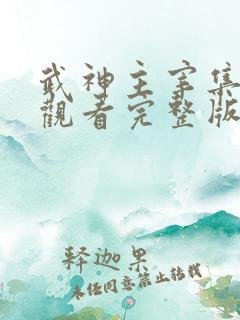 武神主宰集
觀看完整版
释迦果
未经同意禁止转载